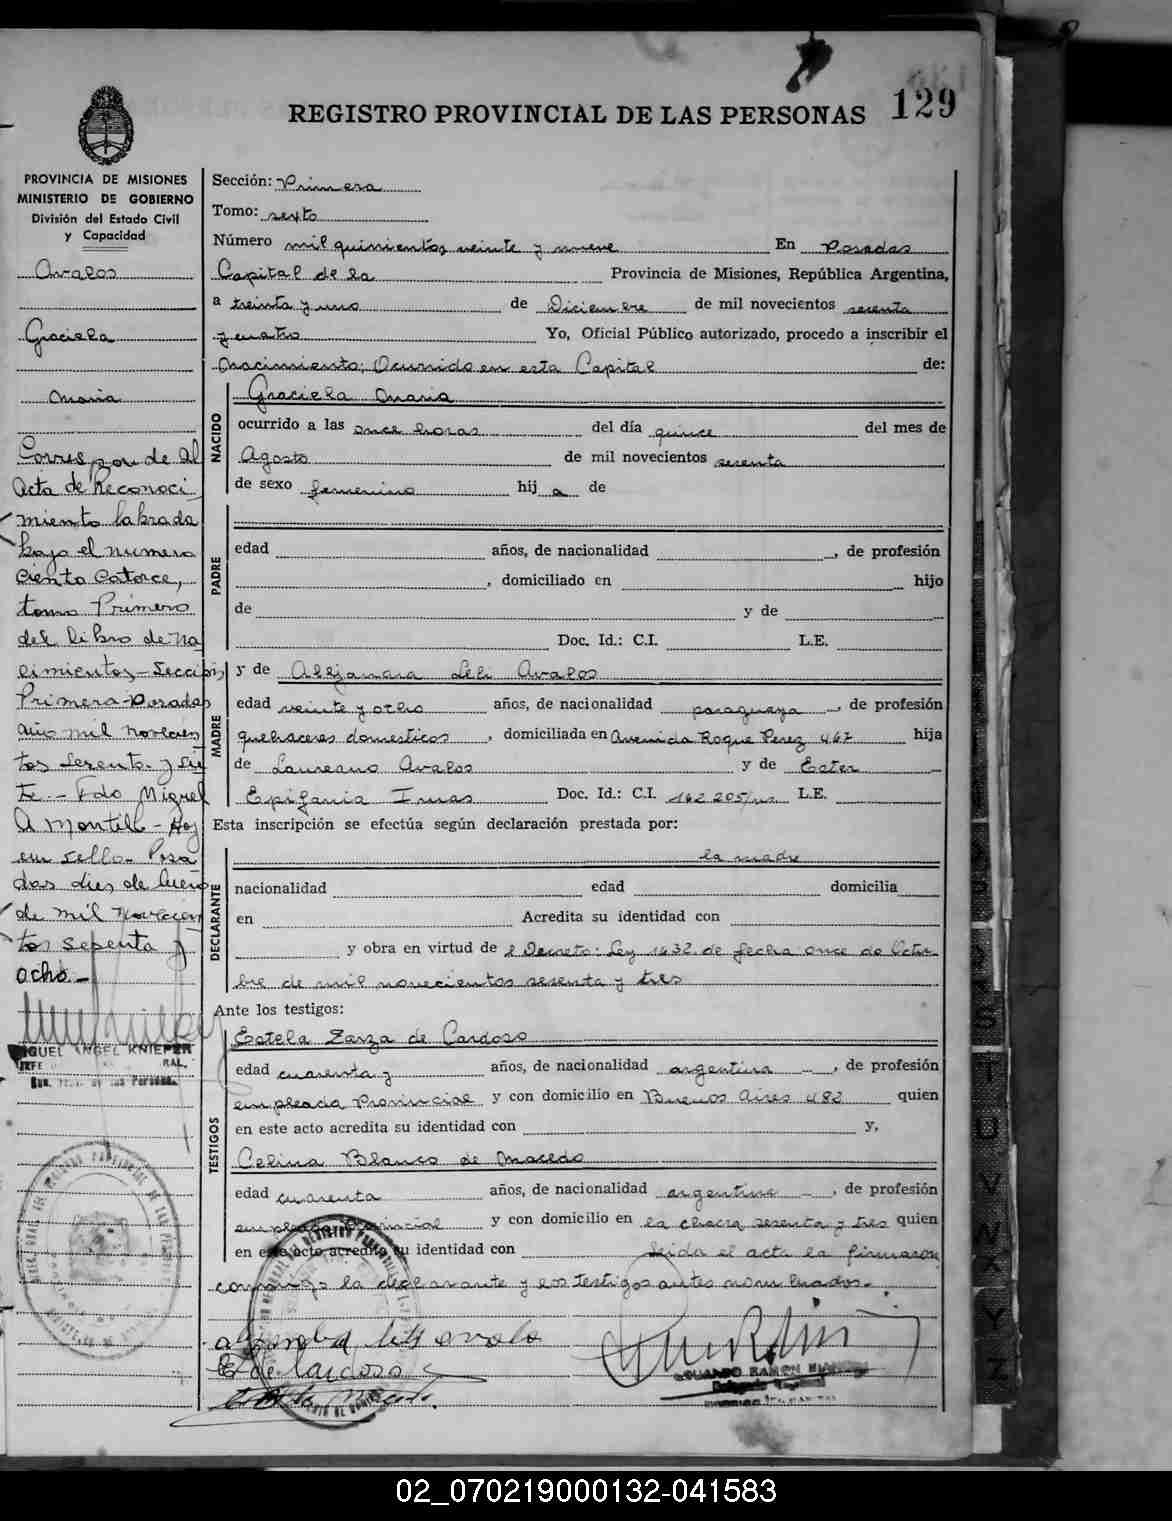 129
REGISTRO PROVINCIAL DE LAS PERSONAS
PROVINCIA DE MISIONES
MINISTERIO DE GOBIERNO
División del Estado Civil
y Capacidad
Avalos
Graciela
Maria
Corresponde al
Acta de Reconoci
miento labrada
bajo el numero
ciento catorce,
tomo Primero
del libro de Na
cimientos - Sección
Primera - Posadas
año mil novecien
tos setenta y sie
te. - Fdo Miguel
A Montill - Hay
un sello. Posa
das dies de
de mil novecien
tos setenta y
ocho. -
MIGUEL ANGEL KNIEPER
Sección: Primera
Tomo: sexto
Número mil quinientos veinte y nueve En Posadas
Capital de la Provincia de Misiones, República Argentina,
a treinta y uno de Diciembre de mil novecientos sesenta
y cuatro Yo, Oficial Público autorizado, procedo a inscribir el
Nacimiento; Ocurrido en esta Capital de:
NACIDO
Graciela Maria
ocurrido a las once horas del día quince del mes de
Agosto de mil novecientos sesenta
de sexo femenino hij a de
PADRE
edad años, de nacionalidad , de profesión
, domiciliado en hijo
de y de
Doc. Id.: C.I. L.E.
MADRE
y de Alejandra Leli Avalos
edad veinte y ocho años, de nacionalidad paraguaya , de profesión
quehaceres domesticos , domiciliada en Avenida Roque Perez 467 hija
de Laureano Avalos y de Ester
Epifania Doc. Id.: C.I. 162 205/ L.E.
Esta inscripción se efectúa según declaración prestada por:
DECLARANTE
la madre
nacionalidad edad domicilia
en Acredita su identidad con
y obra en virtud de l Decreto: Ley 1432 de fecha once de Octu
bre de mil novecientos sesenta y tres
Ante los testigos:
TESTIGOS
Estela Zarza de Cardoso
edad cuarenta y años, de nacionalidad argentina , de profesión
empleada Provincial y con domicilio en Buenos Aires 482 quien
en este acto acredita su identidad con y,
Celina Blanco de Macedo
edad cuarenta años, de nacionalidad argentina , de profesión
empleada Provincial y con domicilio en la chacra sesenta y tres quien
en este acto acredita su identidad con Leida el acta la firmaron
conmigo la declarante y los testigos antes nombrados.
E Z de Cardoso
EDUARDO RAMON
S
T
U
V
W
X
Y
Z
02_070219000132-041583